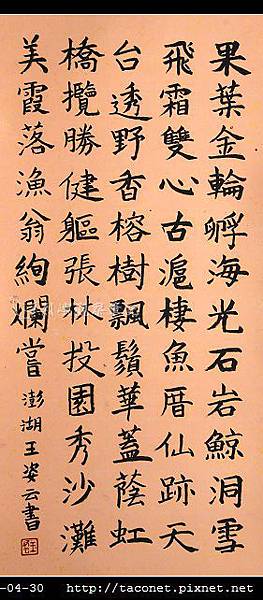 果葉金輪孵海光石岩鯨洞雪
飛霜雙心古滬棲魚厝仙跡天
台透野香榕樹飄鬚華蓋蔭虹
橋攬勝健軀張林投園秀沙灘
美霞落漁翁絢爛嘗 澎湖王姿云書
-04-30 http://taconet.pixnet.net